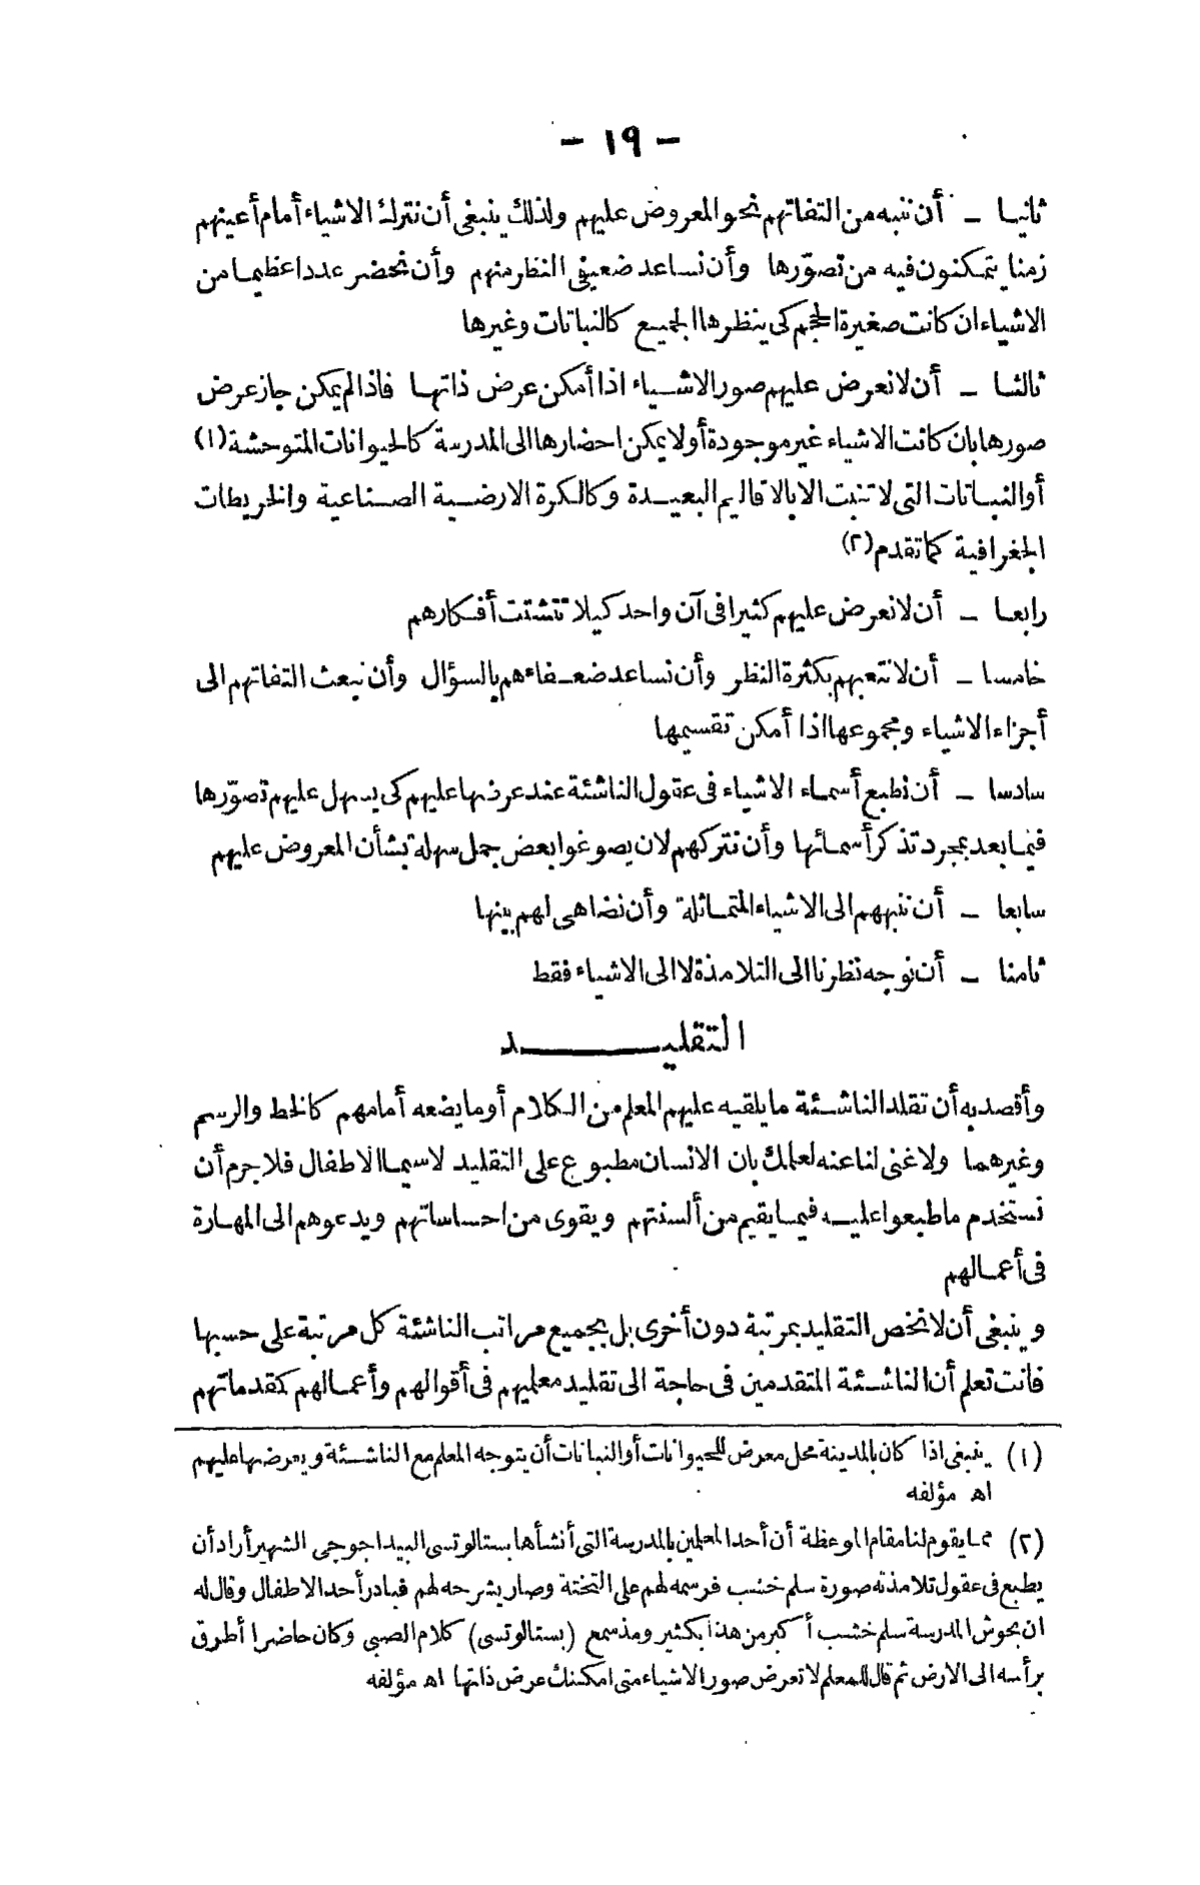 - ١٩ -
ثانيا - أن ننبه من التفاتهم نحو المعروض عليهم ولذلك ينبغى أن نترك الاشياء أمام أعينهم
زمنا يتمكنون فيه من تصوّرها وأن نساعد ضعيفى النظر منهم وأن نحضر عددا عظيما من
الاشياء ان كانت صغيرة الحجم كى ينظرها الجميع كالنباتات وغيرها
ثالثا - أن لا نعرض عليهم صور الاشياء اذا أمكن عرض ذاتها فاذا لم يمكن جاز عرض
صورها بان كانت الاشياء غير موجودة أو لا يمكن احضارها الى المدرسة كالحيوانات المتوحشة (١)
أو النباتات التى لا تنبت الا بالاقاليم البعيدة وكالكرة الارضية الصناعية والخريطات
الجغرافية كما تقدم (٢)
رابعا - أن لا نعرض عليهم كثيرا فى آن واحد كيلا تتشتت أفكارهم
خامسا - أن لا نتعبهم بكثرة النظر وأن نساعد ضعفاءهم بالسؤال وأن نبعث التفاتهم الى
أجزاء الاشياء ومجموعها اذا أمكن تقسيمها
سادسا - أن نطبع أسماء الاشياء فى عقول الناشئة عند عرضها عليهم كى يسهل عليهم تصوّرها
فيما بعد بمجرد تذكر أسمائها وأن نتركهم لان يصوغوا بعض جمل سهلة بشأن المعروض عليهم
سابعا - أن ننبههم الى الاشياء المتماثلة وأن نضاهى لهم بينها
ثامنا - أن نوجه نظرنا الى التلامذة لا الى الاشياء فقط
التقليد
وأقصد به أن تقلد الناشئة ما يلقيه عليهم المعلم من الكلام أو ما يضعه أمامهم كالخط والرسم
وغيرهما ولا غنى لنا عنه لعلمك بان الانسان مطبوع على التقليد لاسيما الاطفال فلا جرم أن
نستخدم ما طبعوا عليه فيما يقيم من ألسنتهم ويقوى من احساساتهم ويدعوهم الى المهارة
فى أعمالهم
وينبغى أن لا نخص التقليد بمرتبة دون أخرى بل بجميع مراتب الناشئة كل مرتبة على حسبها
فانت تعلم أن الناشئة المتقدمين فى حاجة الى تقليد معلميهم فى أقوالهم وأعمالهم كقدماتهم
(١) ينبغى اذا كان بالمدينة محل معرض للحيوانات أو النباتات أن يتوجه المعلم مع الناشئة ويعرضها عليهم
اه مؤلفه
(٢) مما يقوم لنا مقام الموعظة أن أحد المعلمين بالمدرسة التى أنشأها بستالوتسى البيداجوجى الشهير أراد أن
يطبع فى عقول تلامذته صورة سلم خشب فرسمه لهم على التختة وصار يشرحه لهم فبادر أحد الاطفال وقال له
ان بحوش المدرسة سلم خشب أكبر من هذا بكثير ومذ سمع (بستالوتسى) كلام الصبى وكان حاضرا أطرق
برأسه الى الارض ثم قال للمعلم لا تعرض صور الاشياء متى امكنك عرض ذاتها اه مؤلفه